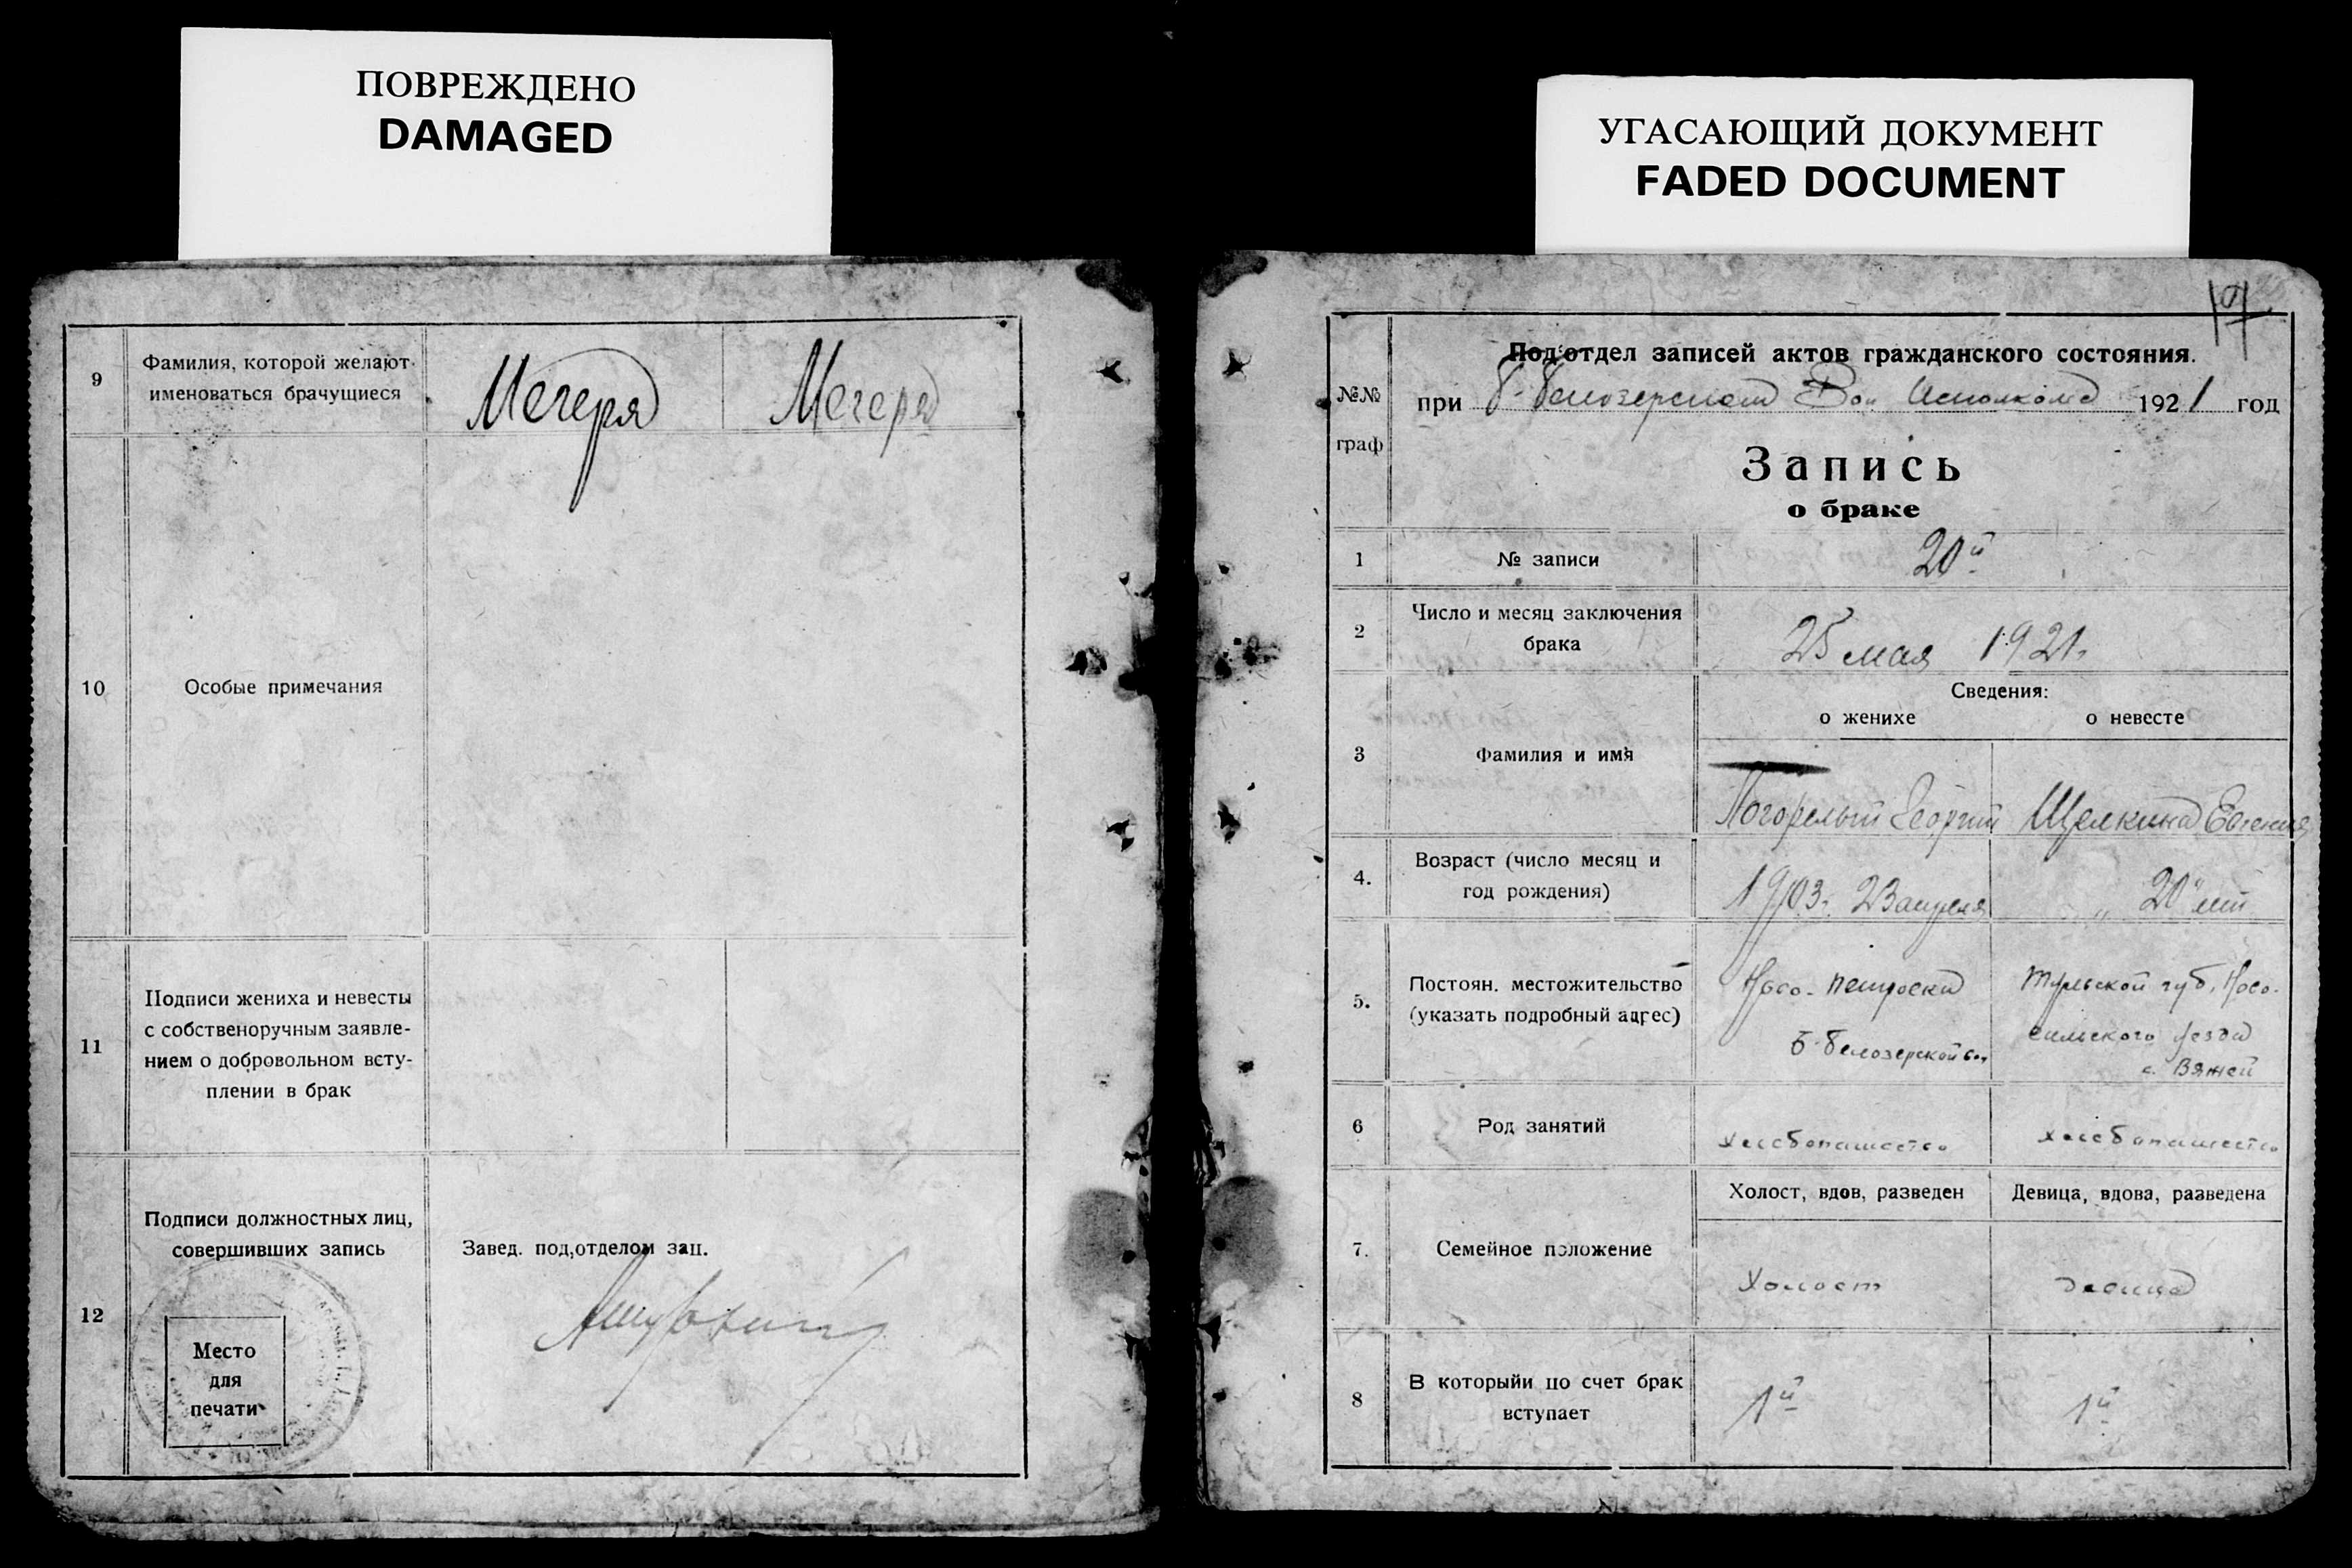 ПОВРЕЖДЕНО
DAMAGED
9
Фамилия, которой желают
именоваться брачущиеся
Мегеря
Мегеря
10
Особые примечания
11
Подписи жениха и невесты
с собственоручным заявле-
нием о добровольном всту-
плении в брак
12
Подписи должностных лиц,
совершивших запись
Завед. под,отделом зап.
Место
для
печати
УГАСАЮЩИЙ ДОКУМЕНТ
FADED DOCUMENT
17
№№
граф
Под'отдел записей актов гражданского состояния.
при Б-Белозерском Вол Исполкоме 1921 год
Запись
о браке
1
№ записи
20й
2
Число и месяц заключения
брака
25 мая 1921.
3
Фамилия и имя
Сведения:
о женихе
о невесте
Погорелый Георгий
Щелкина Евгения
4.
Возраст (число месяц и
год рождения)
1903г. 23 апреля
20 лет
5.
Постоян. местожительство
(указать подробный адрес)
Ново-Петровка
Б-Белозерской вол
Тульской губ, Ново-
сильского уезда
с. Вяжей
6
Род занятий
хлебопашество
хлебопашество
7.
Семейное положение
Холост, вдов, разведен
Девица, вдова, разведена
Холост
девица
8
В которыйи по счет брак
вступает
1й
1й